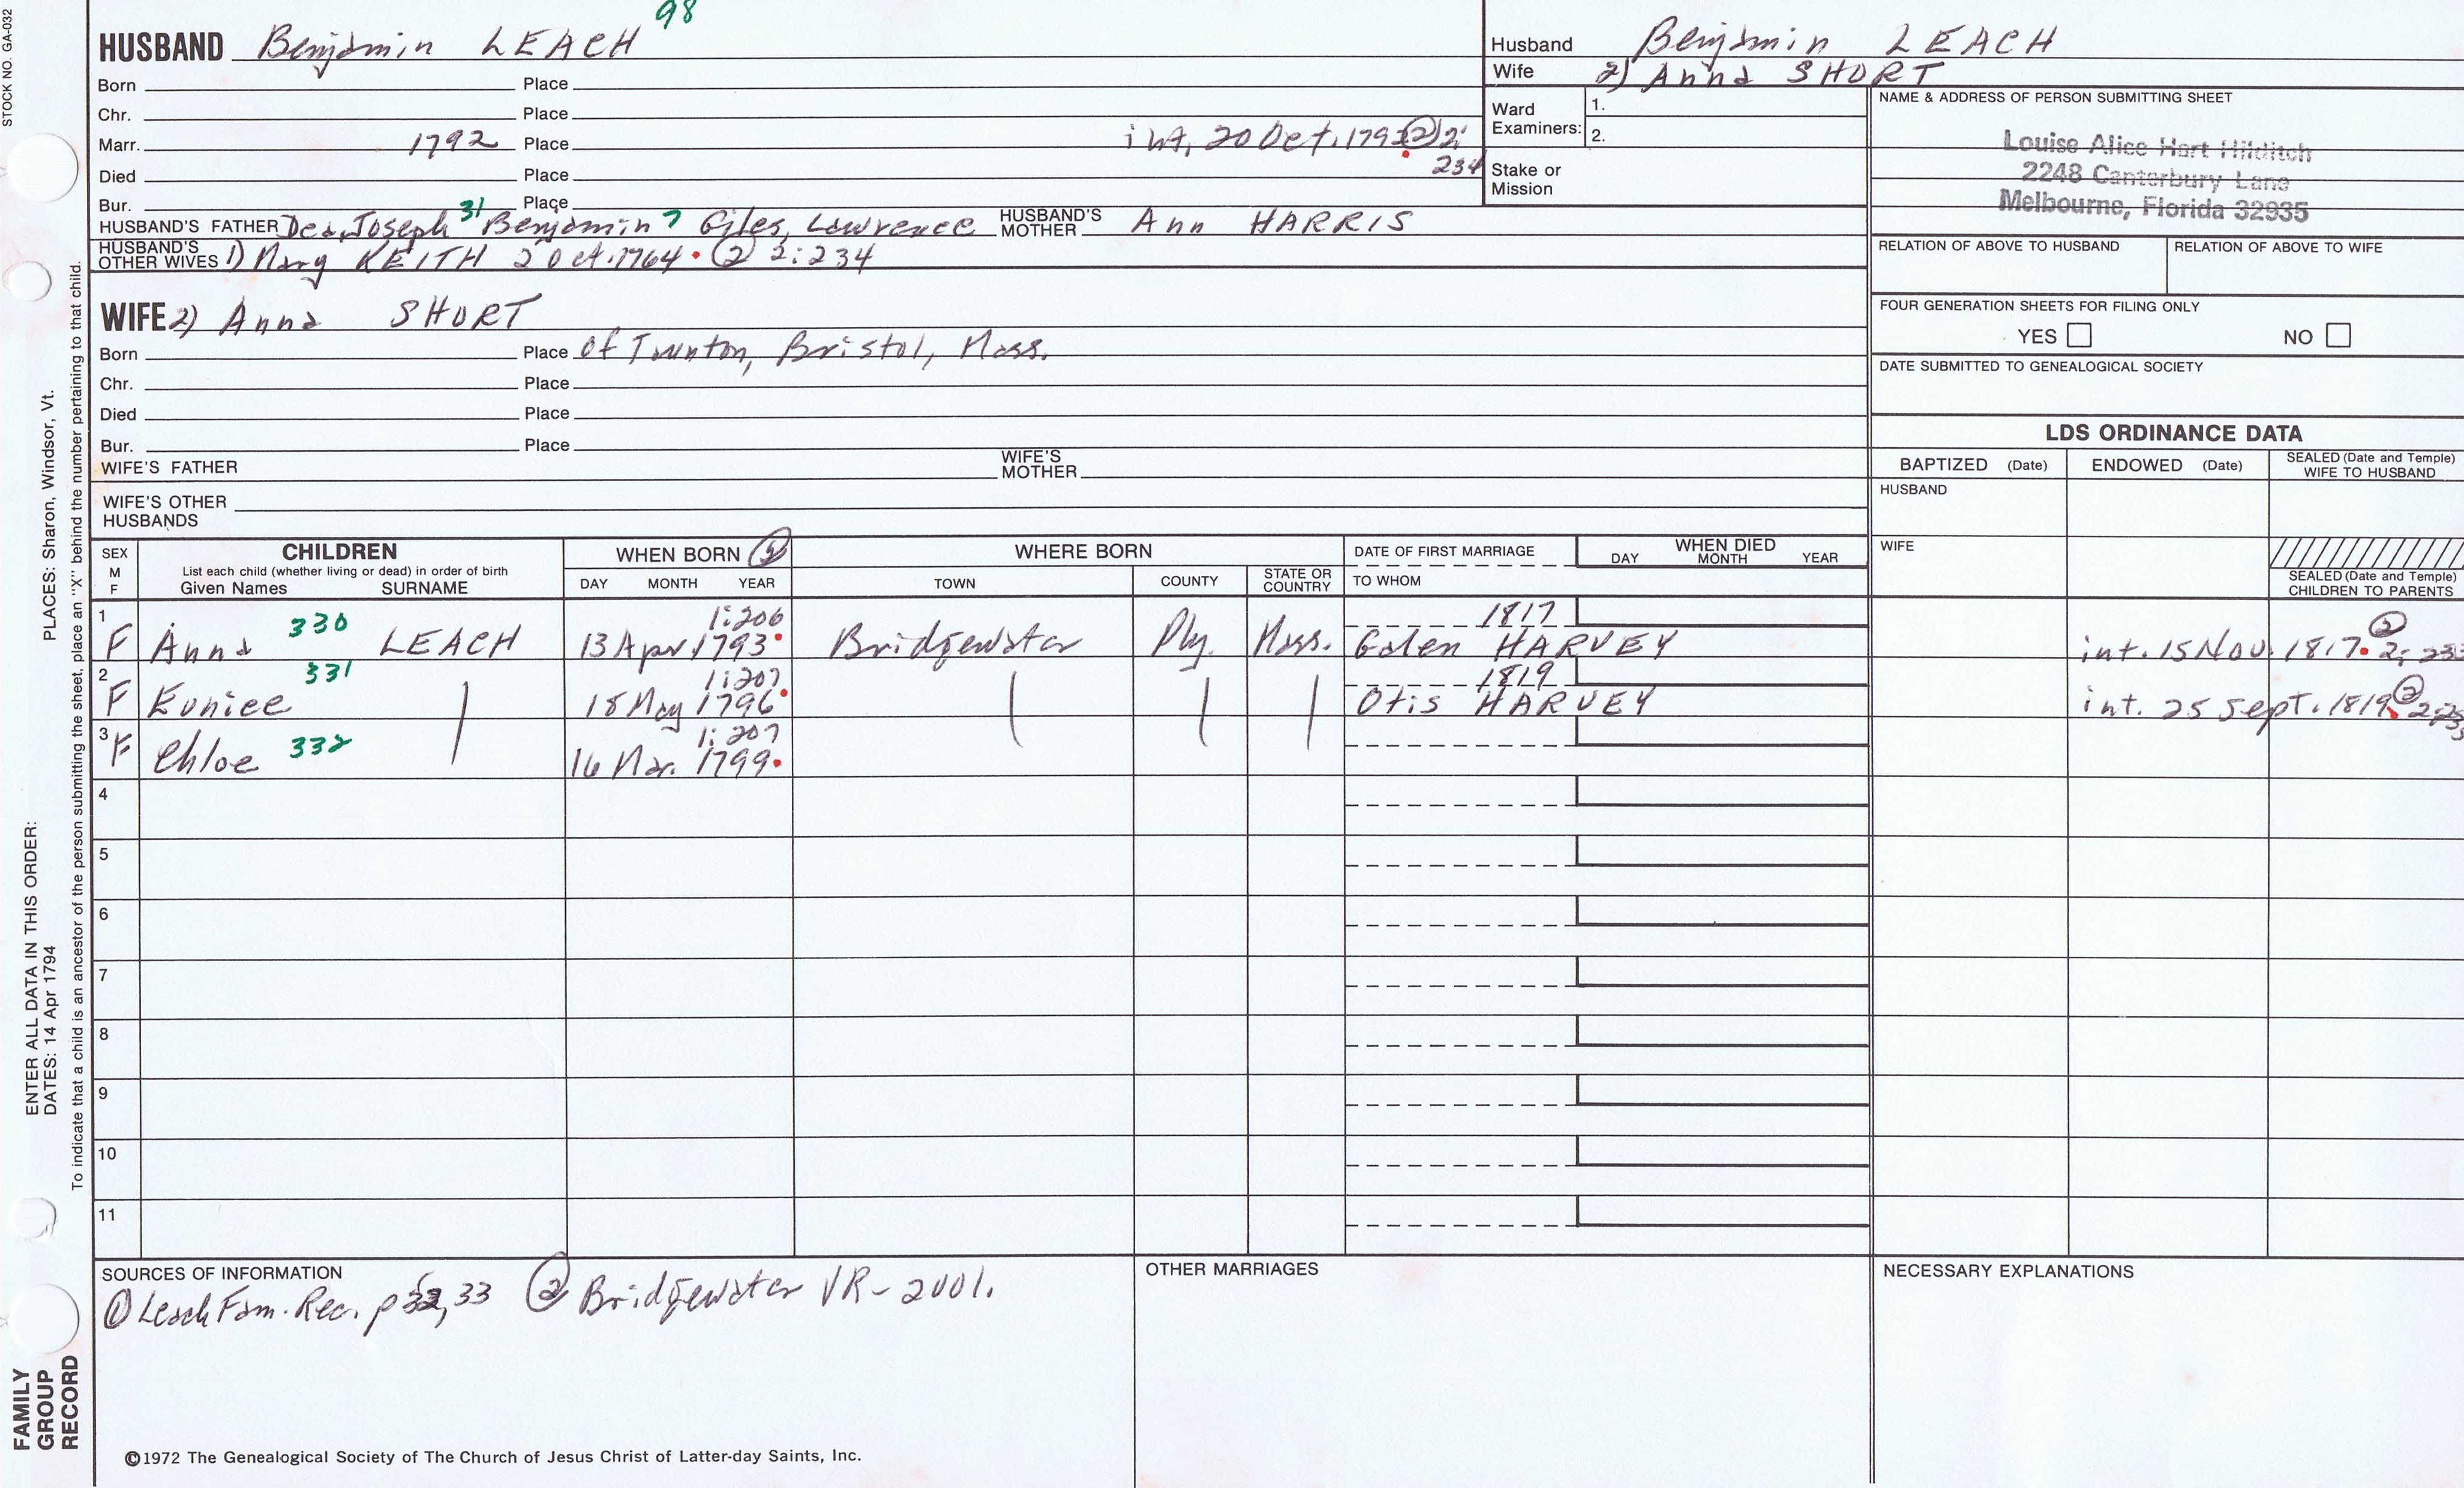 STOCK NO. GA-032
98
HUSBAND Benjamin LEACH
Born Place
Chr. Place
Marr. 1792 Place int. 20 Oct. 1792 ② 2:
234
Died Place
Bur. Place
HUSBAND'S FATHER Dea. Joseph 31 Benjamin 7 Giles, Lawrence HUSBAND'S MOTHER Ann HARRIS
HUSBAND'S OTHER WIVES 1) Mary KEITH 2 Oct. 1764 ② 2:234
WIFE 2) Anna SHORT
Born Place of Taunton, Bristol, Mass.
Chr. Place
Died Place
Bur. Place
WIFE'S FATHER WIFE'S MOTHER
WIFE'S OTHER HUSBANDS
Husband Benjamin LEACH
Wife 2) Anna SHORT
Ward Examiners: 1.
2.
Stake or Mission
NAME & ADDRESS OF PERSON SUBMITTING SHEET
Louise Alice Hart Hilditch
2248 Canterbury Lane
Melbourne, Florida 32935
RELATION OF ABOVE TO HUSBAND RELATION OF ABOVE TO WIFE
FOUR GENERATION SHEETS FOR FILING ONLY
YES NO
DATE SUBMITTED TO GENEALOGICAL SOCIETY
LDS ORDINANCE DATA
BAPTIZED (Date) ENDOWED (Date) SEALED (Date and Temple) WIFE TO HUSBAND
HUSBAND
WIFE
SEALED (Date and Temple) CHILDREN TO PARENTS
SEX M F
CHILDREN
List each child (whether living or dead) in order of birth
Given Names SURNAME
WHEN BORN ②
DAY MONTH YEAR
WHERE BORN
TOWN COUNTY STATE OR COUNTRY
DATE OF FIRST MARRIAGE
TO WHOM
WHEN DIED
DAY MONTH YEAR
1 330 1:206 1817 ②
F Anna LEACH 13 Apr 1793 Bridgewater Ply. Mass. Galen HARVEY int. 15 Nov. 1817. 2:
2 331 1:207 1819 ②
F Eunice 18 May 1796 Otis HARVEY int. 25 Sept. 1819
3 1:207
F Chloe 332 16 Mar. 1799
4
5
6
7
8
9
10
11
SOURCES OF INFORMATION
① Leach Fam. Rec. p 32, 33 ② Bridgewater VR - 2001.
OTHER MARRIAGES
NECESSARY EXPLANATIONS
©1972 The Genealogical Society of The Church of Jesus Christ of Latter-day Saints, Inc.
ENTER ALL DATA IN THIS ORDER:
DATES: 14 Apr 1794 PLACES: Sharon, Windsor, Vt.
To indicate that a child is an ancestor of the person submitting the sheet, place an "X" behind the number pertaining to that child.
FAMILY
GROUP
RECORD